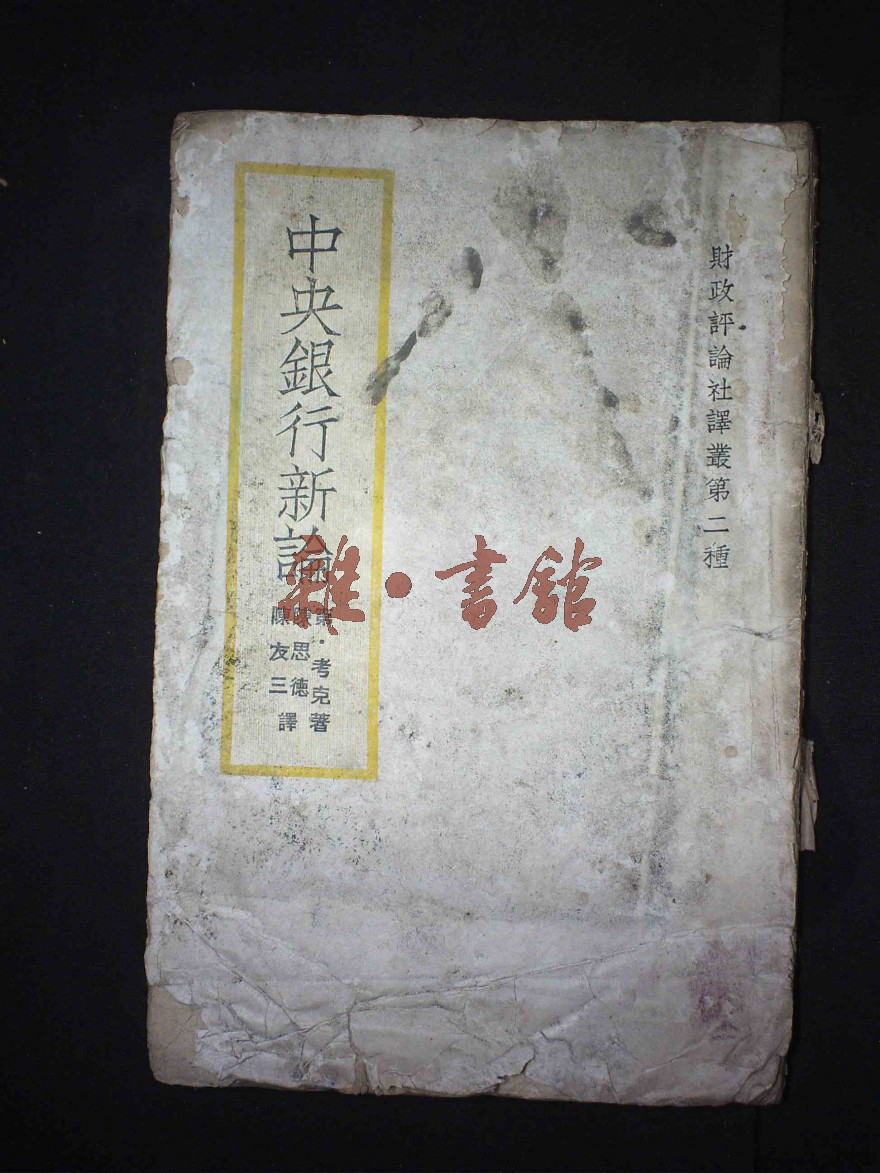 財政評論社譯叢第二種
中央銀行新論
第·考克著
陳思德
陳友三
譯
雜·書館